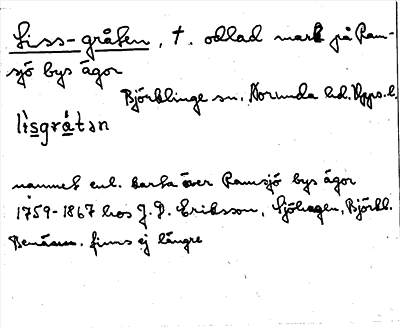 Liss-gråten, †. odlad mark på Ram-
sjö bys ägor
Björklinge sn, Norunda hd. Upps. l.
lìsgrátən
namnet enl. karta över Ramsjö bys ägor
1759-1867 hos J. P. Eriksson, Sjöhagen, Björkl.
Benämn. finns ej längre